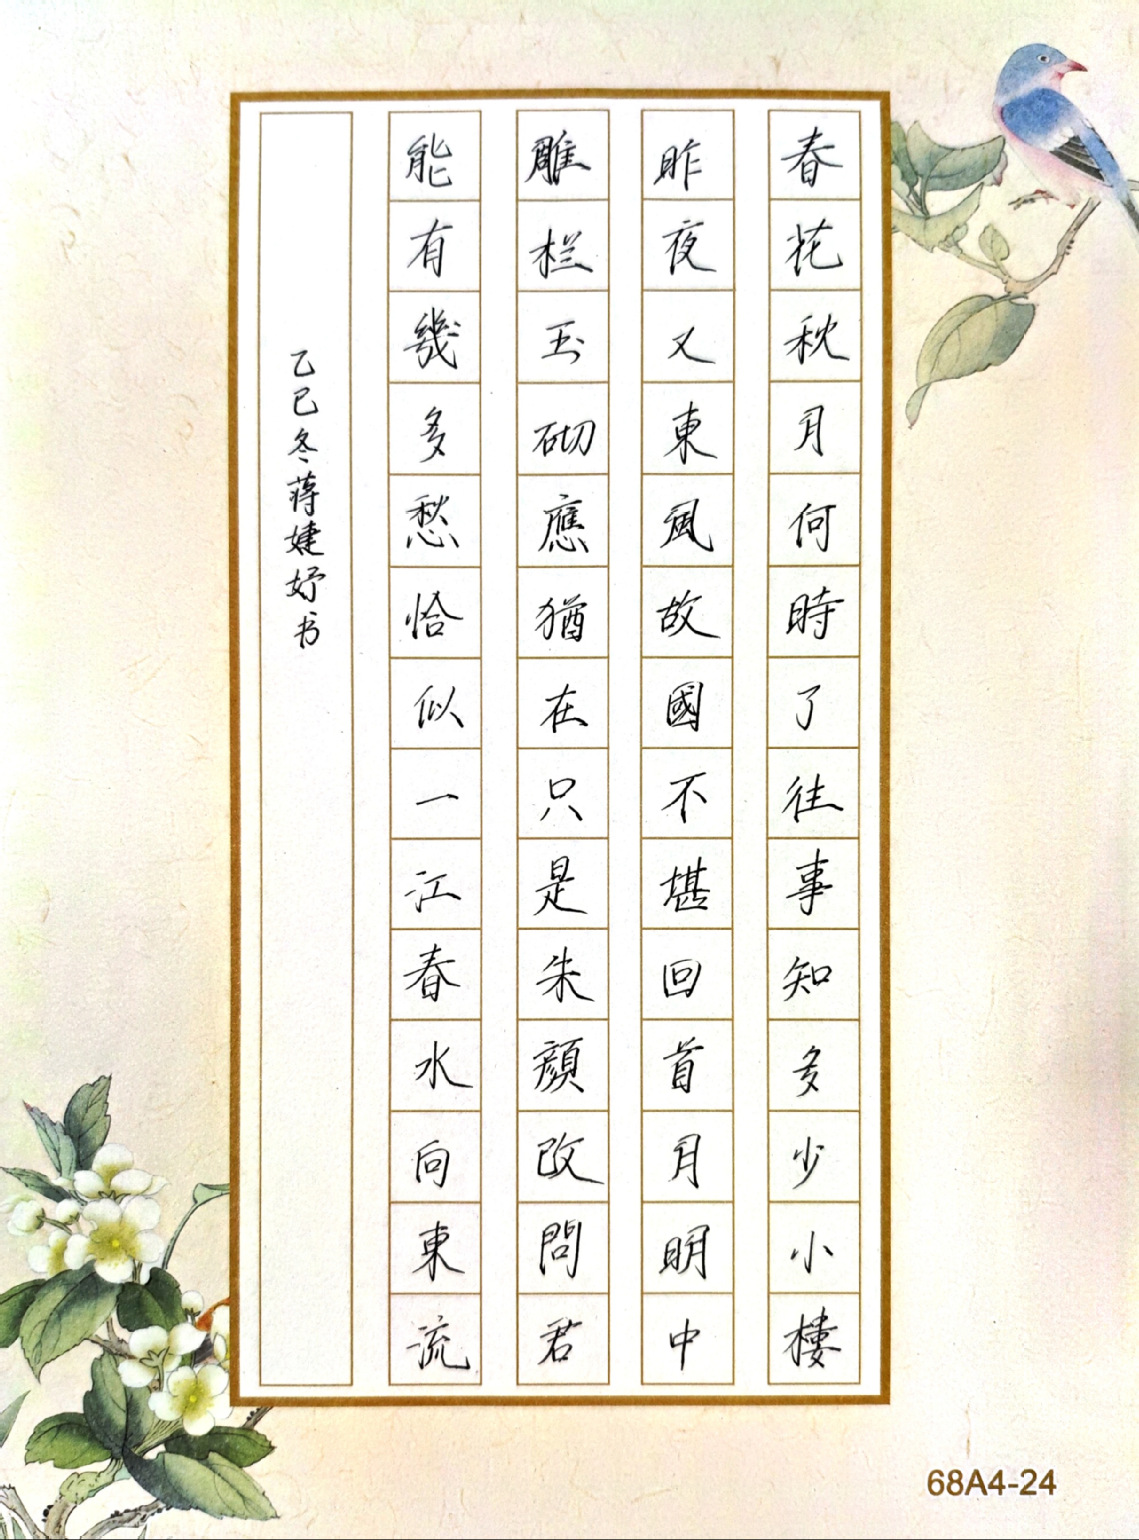 春花秋月何時了往事知多少小樓
昨夜又東風故國不堪回首月明中
雕栏玉砌應猶在只是朱顏改問君
能有幾多愁恰似一江春水向東流
乙巳冬蒋婕妤书
68A4-24